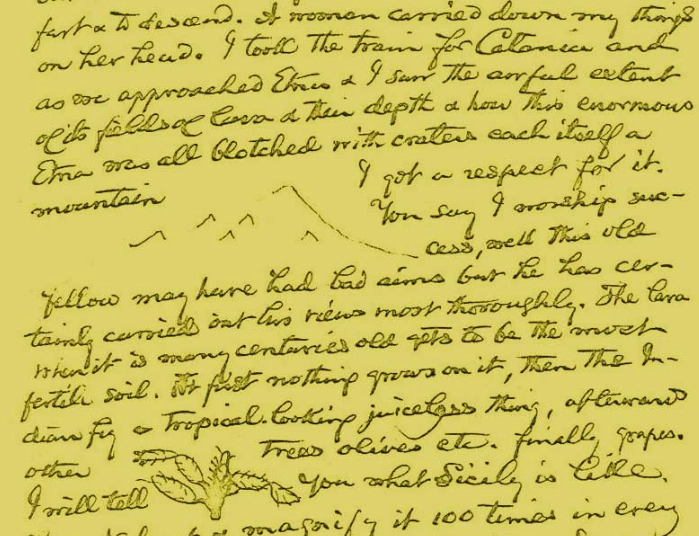 fast & to descend. A woman carried down my things
on her head. I took the train for Catania and
as we approached Etna & I saw the awful extent
of its fields of lava & their depth & how this enormous
Etna was all blotched with craters each itself a
mountain I got a respect for it.
You say I worship suc-
cess, well this old
fellow may have had bad aims but he has cer-
tainly carried out his views most thoroughly. The lava
when it is many centuries old gets to be the most
fertile soil. At first nothing grows on it, then the In-
dian fig a tropical-looking juiceless thing, afterward
other trees olives etc. finally grapes.
I will tell you what Sicily is like.
magnify it 100 times in every